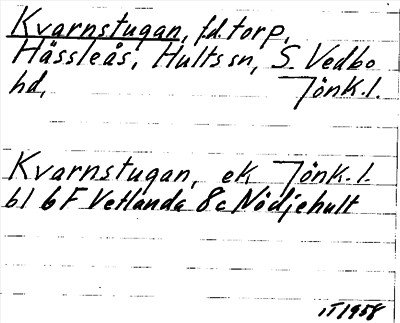 Kvarnstugan, f.d. torp,
Hässleås, Hults sn, S. Vedbo
hd, Jönk. l.
Kvarnstugan, ek Jönk. l.
bl 6F Vetlanda 8c Nödjehult
IT 1958